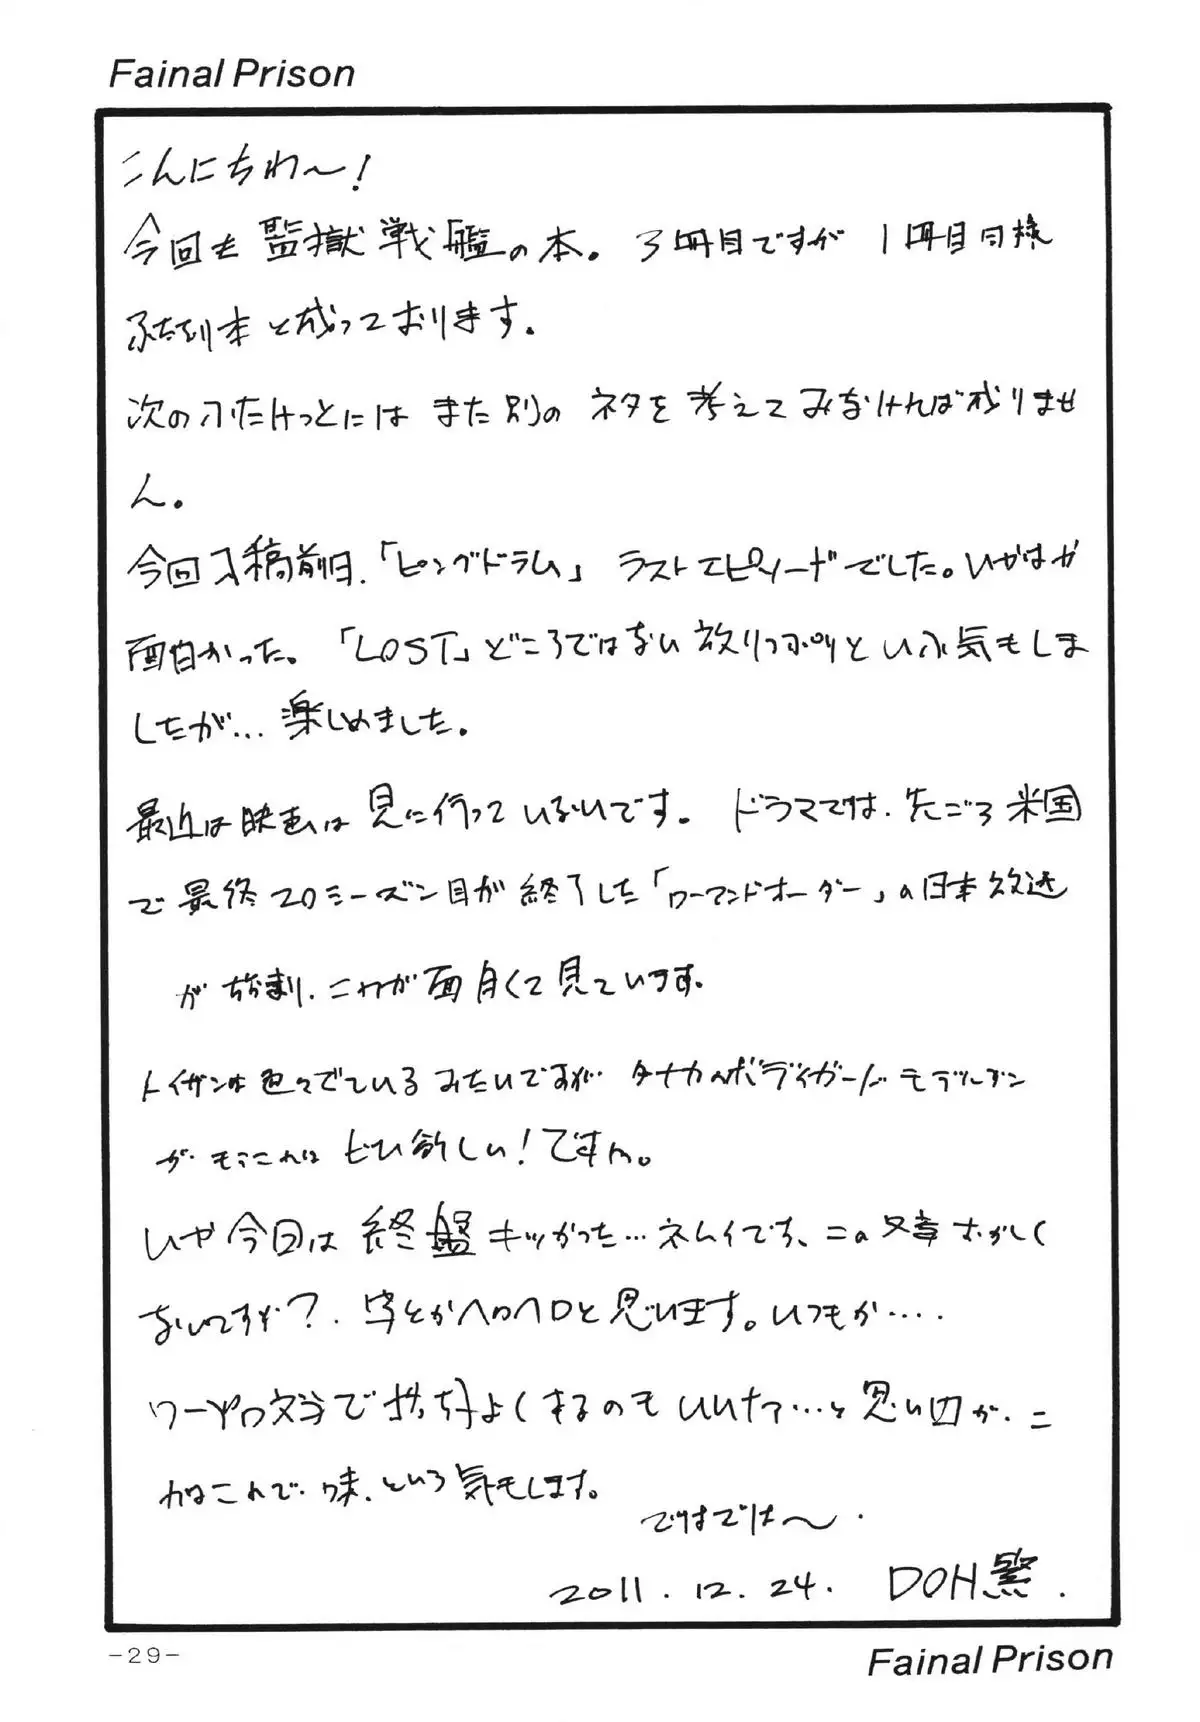 Fainal Prison
こんにちわ〜!
今回も監獄戦艦の本。3冊目ですが1冊目同様
ふたなり本と成っております。
次のふたけっとにはまた別のネタを考えてみなければ成りませ
ん。
今回入稿前日、「ピングドラム」ラストエピソードでした。いやはや
面白かった。「LOST」どころではない放りっぷりという気もしま
したが…楽しめました。
最近は映画は見に行っていないです。ドラマでは、先ごろ米国
で最終20シーズン目が終了した「ローアンドオーダー」の日本放送
が始まり、これが面白くて見ています。
トイガンは色々でているみたいですが タナカのボディガードモデルガン
が、もうこれはぜひ欲しい!ですね。
いや今回は終盤キツかった…ネムイです、この文章おかしく
ないですか?、字とかヘロヘロと思います。いつもか....
ワープロ文字で持ちよくするのもいいなァ…と思い四が、こ
れはこれで味、という気もします。
ではでは〜.
2011.12.24. DOH繁.
-29-
Fainal Prison